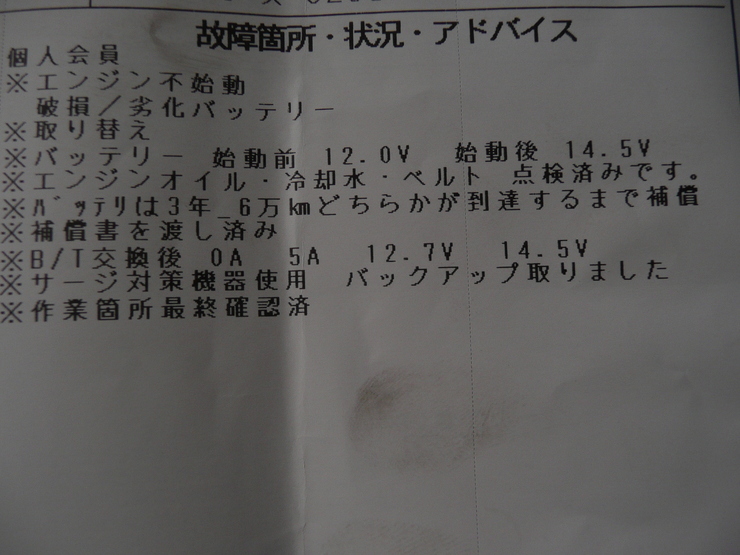 故障箇所・状況・アドバイス
個人会員
※エンジン不始動
破損／劣化バッテリー
※取り替え
※バッテリー 始動前 12.0V 始動後 14.5V
※エンジンオイル・冷却水・ベルト 点検済みです。
※ﾊﾞｯﾃﾘは3年_6万kmどちらかが到達するまで補償
※補償書を渡し済み
※B/T交換後 0A 5A 12.7V 14.5V
※サージ対策機器使用 バックアップ取りました
※作業箇所最終確認済